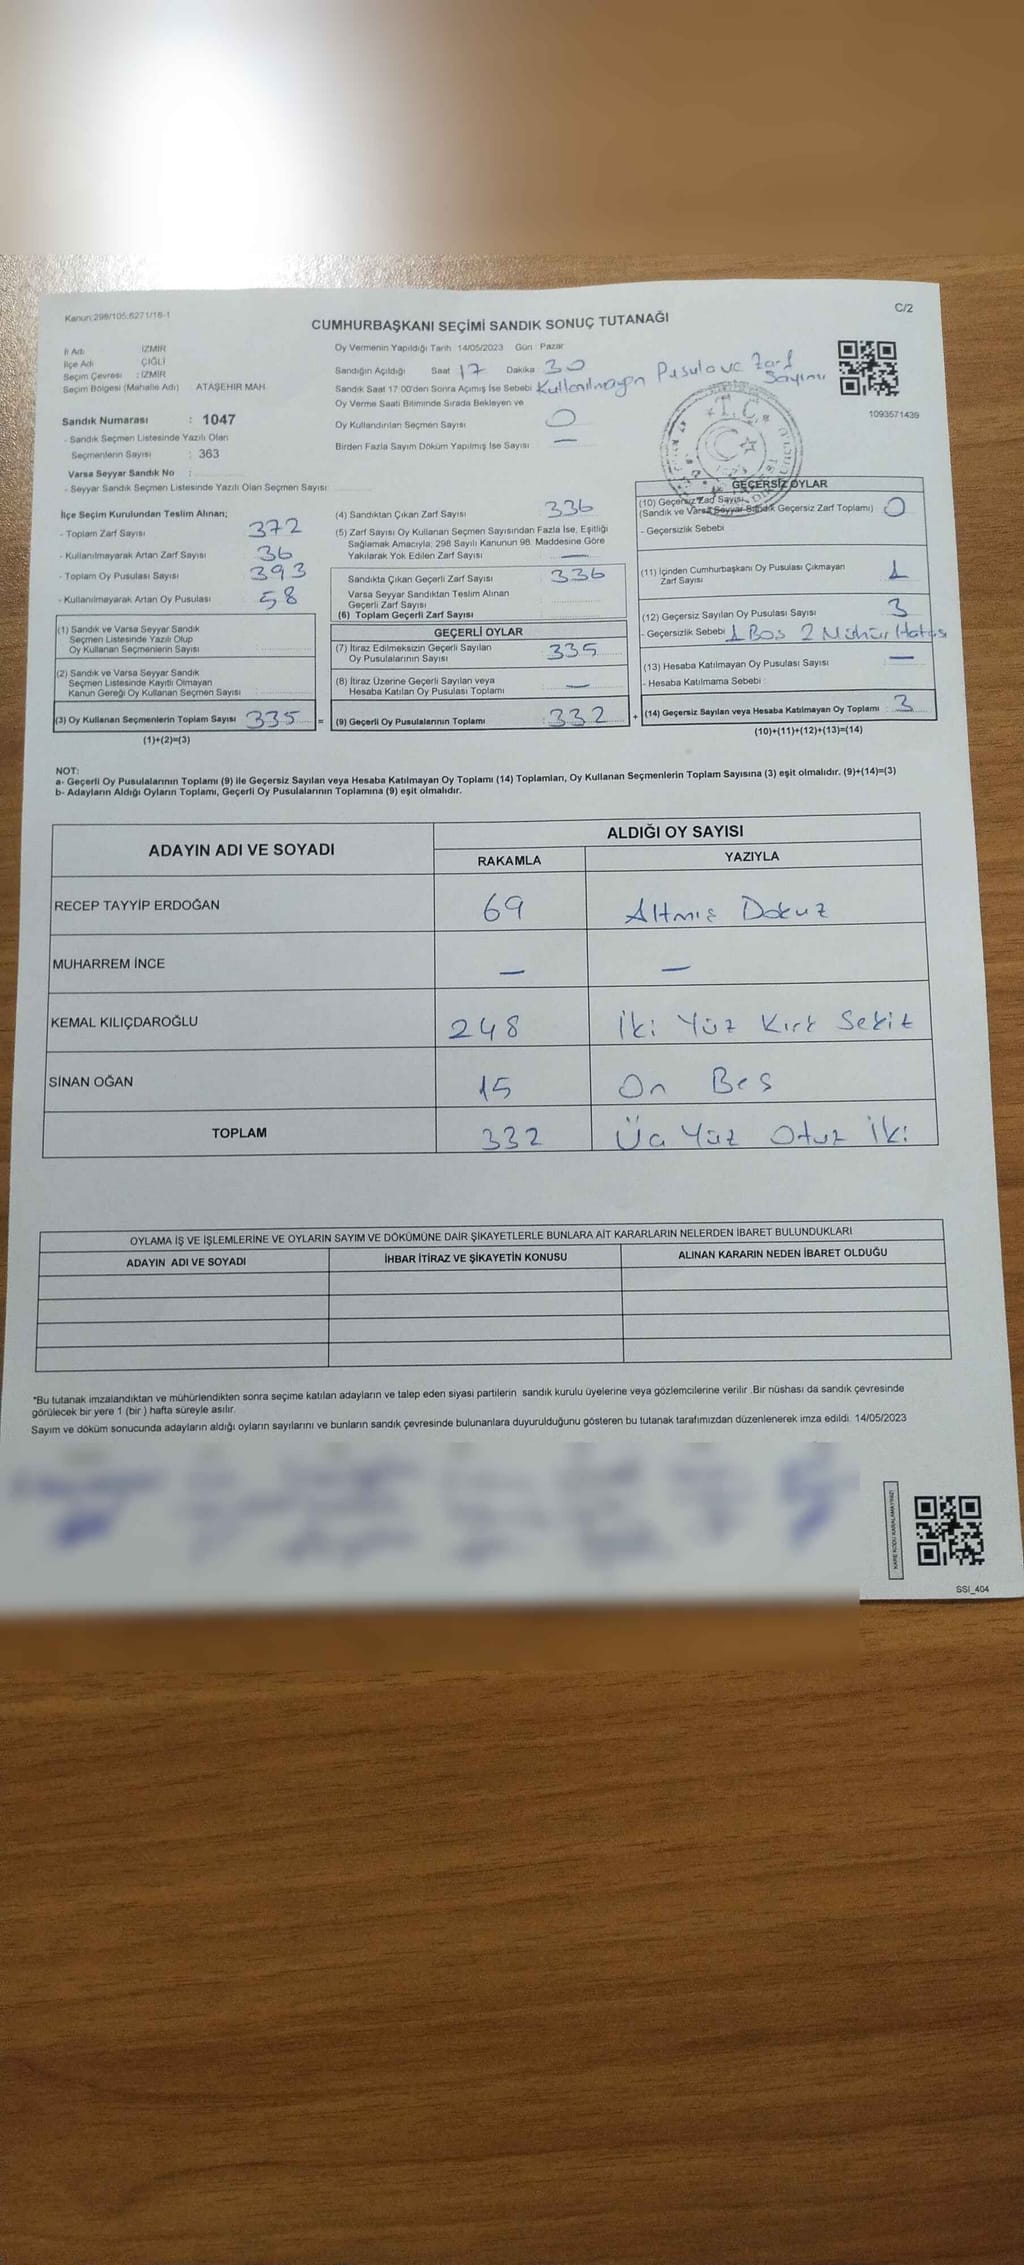 Kanun:298/105;6271/18-1
C/2
CUMHURBAŞKANI SEÇİMİ SANDIK SONUÇ TUTANAĞI
İl Adı : İZMİR
İlçe Adı : ÇİĞLİ
Seçim Çevresi : İZMİR
Seçim Bölgesi (Mahalle Adı) : ATAŞEHİR MAH.
Sandık Numarası : 1047
- Sandık Seçmen Listesinde Yazılı Olan
Seçmenlerin Sayısı : 363
Varsa Seyyar Sandık No :
- Seyyar Sandık Seçmen Listesinde Yazılı Olan Seçmen Sayısı:
Oy Vermenin Yapıldığı Tarih: 14/05/2023 Gün : Pazar
Sandığın Açıldığı Saat 17 Dakika 30
Sandık Saat 17:00'den Sonra Açımış İse Sebebi Kullanılmayan Pusula ve Zarf
Sayımı
Oy Verme Saati Bitiminde Sırada Bekleyen ve
Oy Kullandırılan Seçmen Sayısı 0
Birden Fazla Sayım Döküm Yapılmış İse Sayısı —
1093571439
T.C.
İlçe Seçim Kurulundan Teslim Alınan;
- Toplam Zarf Sayısı 372
- Kullanılmayarak Artan Zarf Sayısı 36
- Toplam Oy Pusulası Sayısı 393
- Kullanılmayarak Artan Oy Pusulası 58
(1) Sandık ve Varsa Seyyar Sandık
Seçmen Listesinde Yazılı Olup
Oy Kullanan Seçmenlerin Sayısı
(2) Sandık ve Varsa Seyyar Sandık
Seçmen Listesinde Kayıtlı Olmayan
Kanun Gereği Oy Kullanan Seçmen Sayısı
(3) Oy Kullanan Seçmenlerin Toplam Sayısı 335 =
(1)+(2)=(3)
(4) Sandıktan Çıkan Zarf Sayısı 336
(5) Zarf Sayısı Oy Kullanan Seçmen Sayısından Fazla İse, Eşitliği
Sağlamak Amacıyla; 298 Sayılı Kanunun 98. Maddesine Göre
Yakılarak Yok Edilen Zarf Sayısı —
Sandıkta Çıkan Geçerli Zarf Sayısı 336
Varsa Seyyar Sandıktan Teslim Alınan
Geçerli Zarf Sayısı
(6) Toplam Geçerli Zarf Sayısı
GEÇERLİ OYLAR
(7) İtiraz Edilmeksizin Geçerli Sayılan
Oy Pusulalarının Sayısı 335
(8) İtiraz Üzerine Geçerli Sayılan veya
Hesaba Katılan Oy Pusulası Toplamı —
(9) Geçerli Oy Pusulalarının Toplamı 332 +
GEÇERSİZ OYLAR
(10) Geçersiz Zarf Sayısı
(Sandık ve Varsa Seyyar Sandık Geçersiz Zarf Toplamı) 0
- Geçersizlik Sebebi
(11) İçinden Cumhurbaşkanı Oy Pusulası Çıkmayan
Zarf Sayısı 1
(12) Geçersiz Sayılan Oy Pusulası Sayısı 3
- Geçersizlik Sebebi 1 Boş 2 Mühür Hatası
(13) Hesaba Katılmayan Oy Pusulası Sayısı —
- Hesaba Katılmama Sebebi :
(14) Geçersiz Sayılan veya Hesaba Katılmayan Oy Toplamı : 3
(10)+(11)+(12)+(13)=(14)
NOT:
a- Geçerli Oy Pusulalarının Toplamı (9) ile Geçersiz Sayılan veya Hesaba Katılmayan Oy Toplamı (14) Toplamları, Oy Kullanan Seçmenlerin Toplam Sayısına (3) eşit olmalıdır. (9)+(14)=(3)
b- Adayların Aldığı Oyların Toplamı, Geçerli Oy Pusulalarının Toplamına (9) eşit olmalıdır.
ADAYIN ADI VE SOYADI ALDIĞI OY SAYISI
RAKAMLA YAZIYLA
RECEP TAYYİP ERDOĞAN 69 Altmış Dokuz
MUHARREM İNCE — —
KEMAL KILIÇDAROĞLU 248 İki Yüz Kırk Sekiz
SİNAN OĞAN 15 On Beş
TOPLAM 332 Üç Yüz Otuz İki
OYLAMA İŞ VE İŞLEMLERİNE VE OYLARIN SAYIM VE DÖKÜMÜNE DAİR ŞİKAYETLERLE BUNLARA AİT KARARLARIN NELERDEN İBARET BULUNDUKLARI
ADAYIN ADI VE SOYADI İHBAR İTİRAZ VE ŞİKAYETİN KONUSU ALINAN KARARIN NEDEN İBARET OLDUĞU
*Bu tutanak imzalandıktan ve mühürlendikten sonra seçime katılan adayların ve talep eden siyasi partilerin sandık kurulu üyelerine veya gözlemcilerine verilir .Bir nüshası da sandık çevresinde
görülecek bir yere 1 (bir ) hafta süreyle asılır.
Sayım ve döküm sonucunda adayların aldığı oyların sayılarını ve bunların sandık çevresinde bulunanlara duyurulduğunu gösteren bu tutanak tarafımızdan düzenlenerek imza edildi. 14/05/2023
KARE KODU KARALAMAYINIZ!
SSI_404